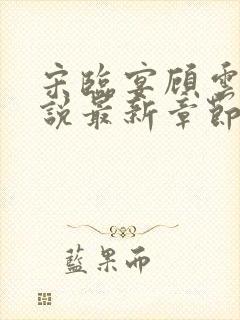 宋臨宴顧雲
說最新章節
藍果而